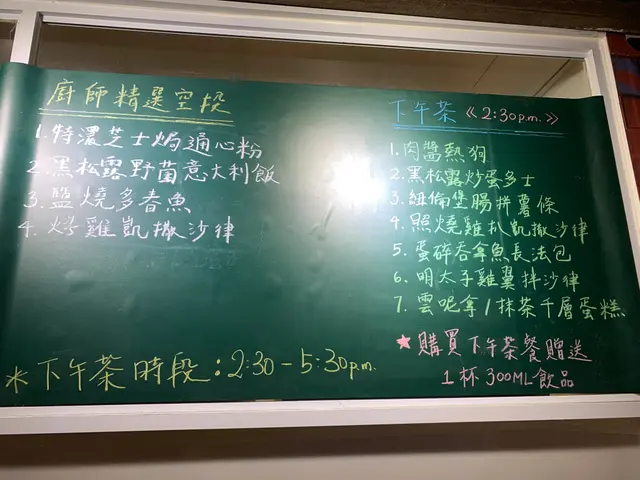 廚師精選空投
1. 特濃芝士焗通心粉
2. 黑松露野菌意大利飯
3. 鹽燒多春魚
4. 烤雞凱撒沙律
*下午茶時段：2:30-5:30p.m.
下午茶《2:30p.m.》
1. 肉醬熱狗
2. 黑松露炒蛋多士
3. 紐倫堡腸拼薯條
4. 照燒雞扒凱撒沙律
5. 蛋碎吞拿魚長法包
6. 明太子雞翼拌沙律
7. 雲呢拿/抹茶千層蛋糕
★購買下午茶餐贈送
1杯300ML飲品